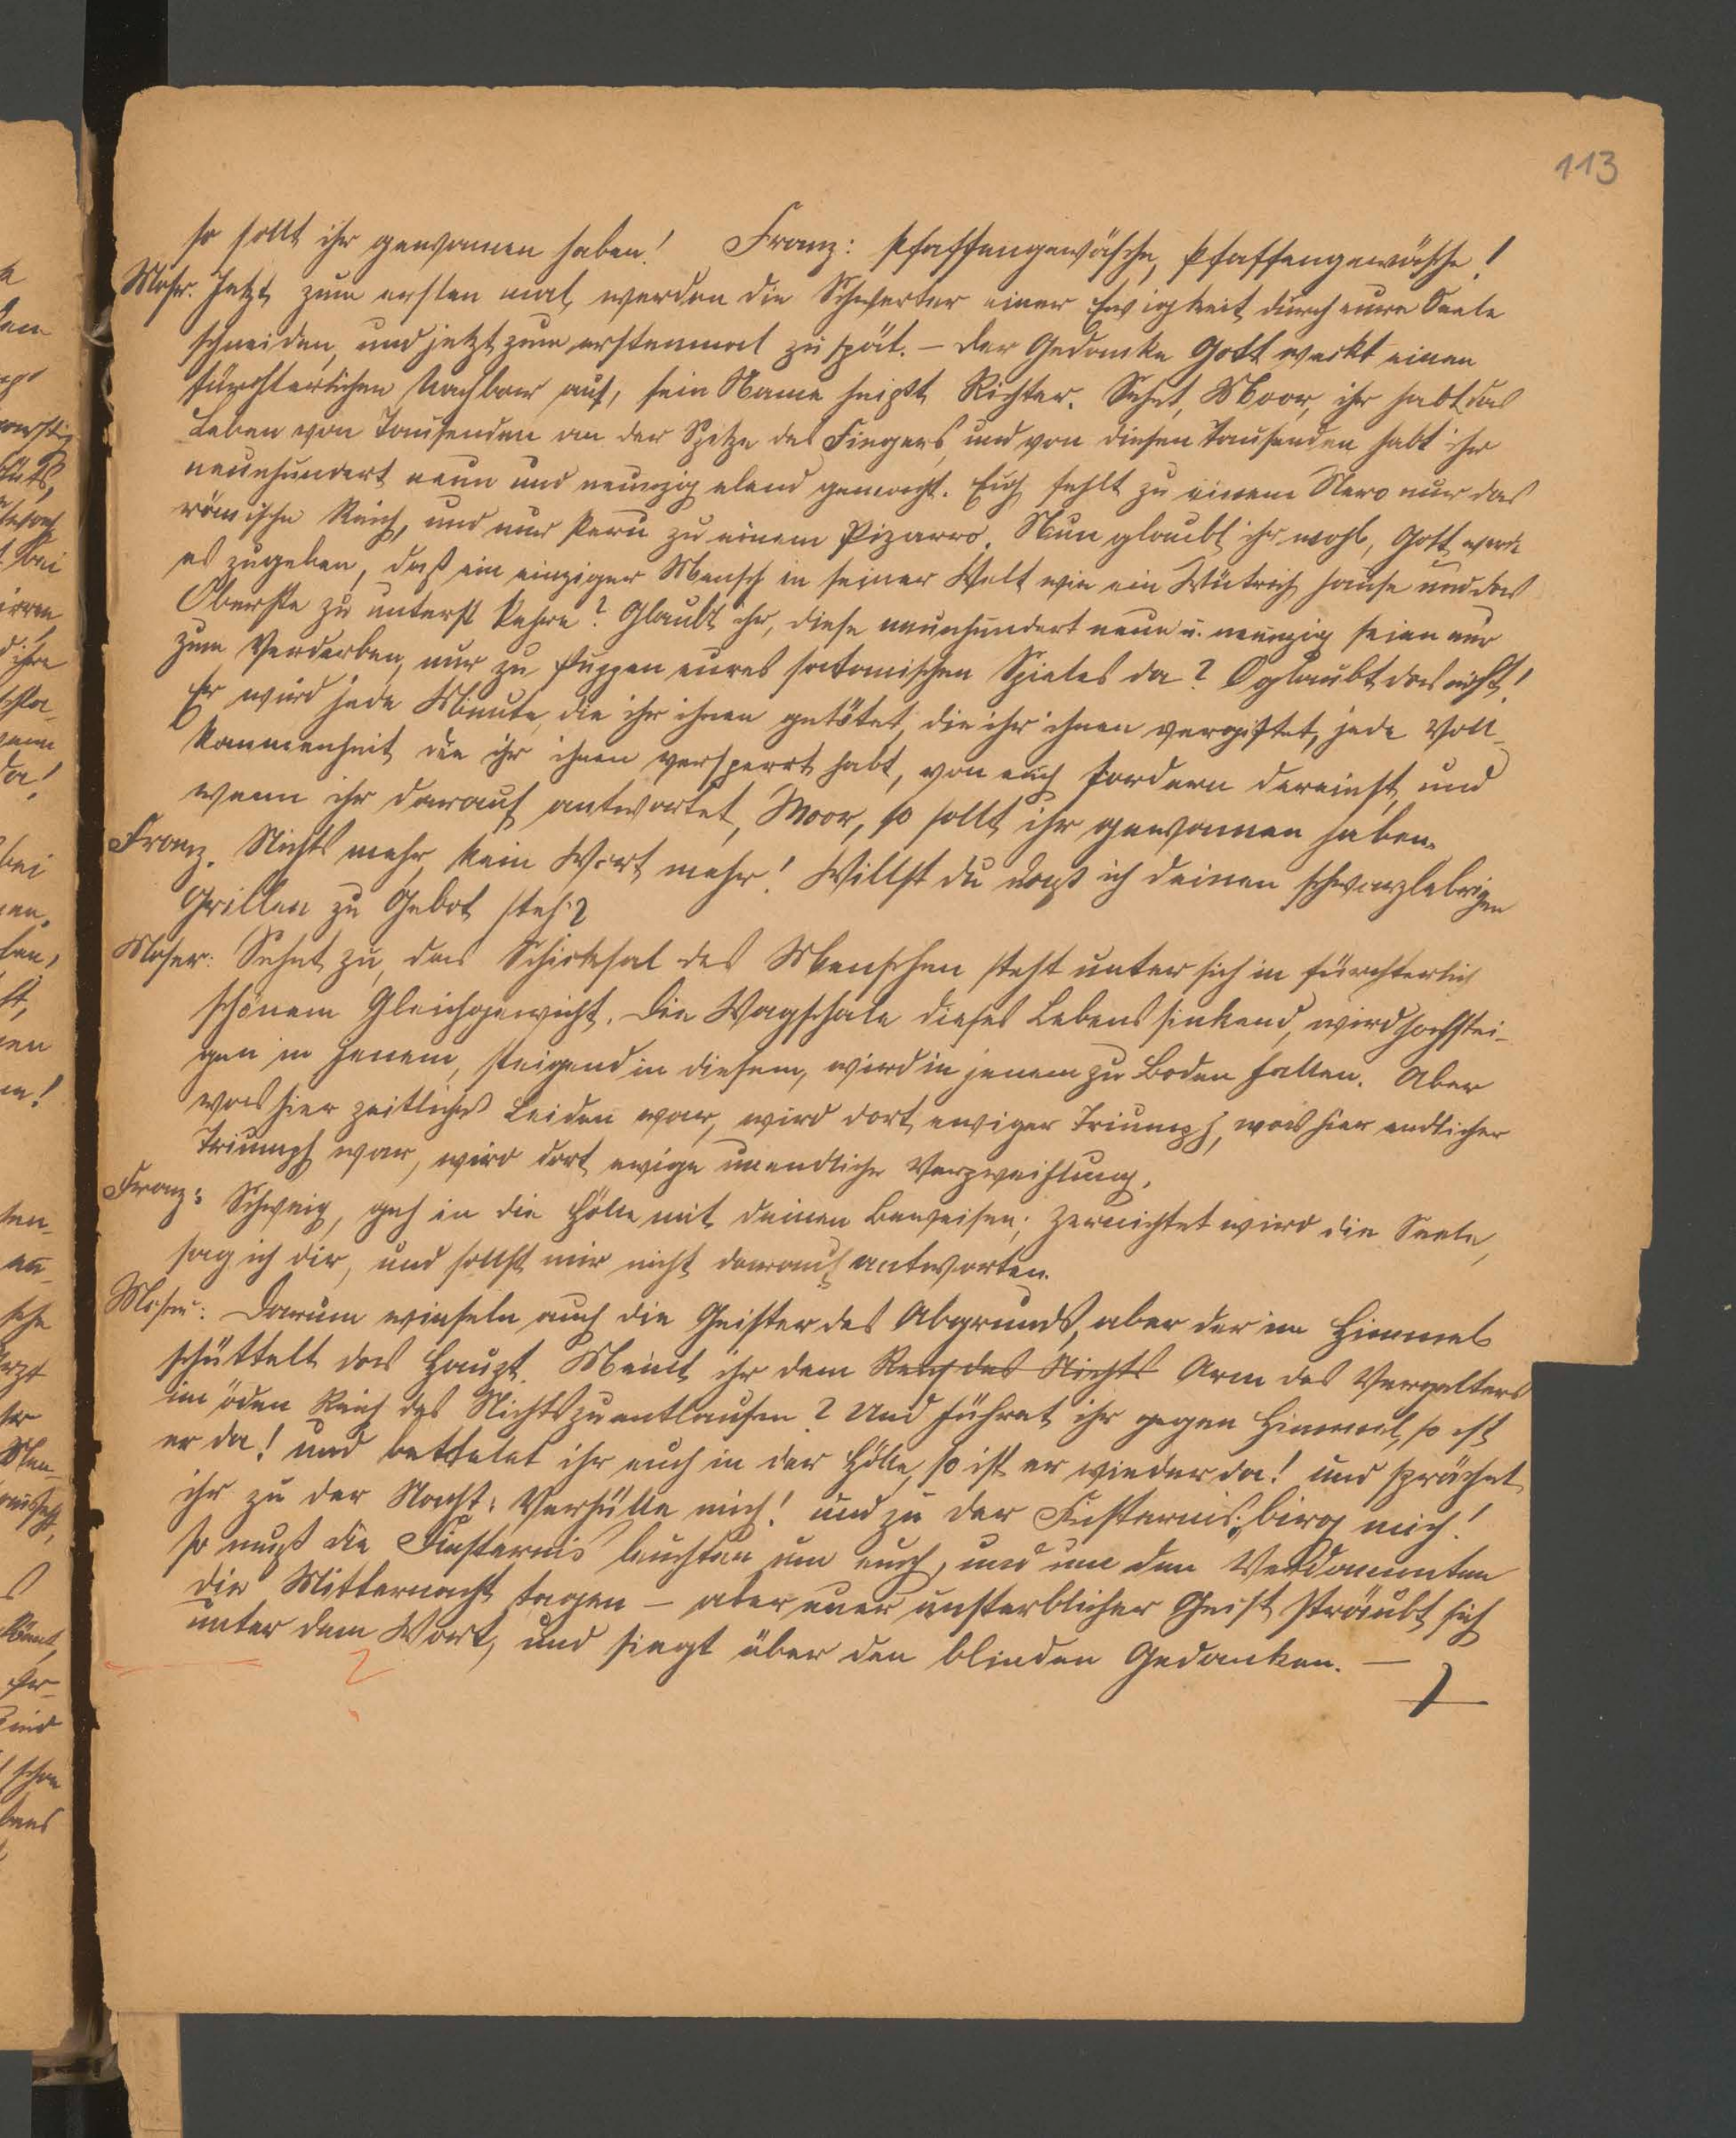 113
so sollt ihr gewonnen haben! Franz: Pfaffengewäsche, Pfaffengewäsche!
Moser. Jetzt zum ersten mal werden die Schwerter einer Ewigkeit durch eure Seele
schneiden, und jetzt zum erstenmal zu spät. – Der Gedanke Gott weckt einen
fürchterlichen Nachbar auf, sein Name heißt Richter. Sehet, Moor, ihr habt das
Leben von Tausenden an der Spitze des Fingers, und von diesen Tausenden habt ihr
neunhundert neun und neunzig elend gemacht. Euch fehlt zu einem Nero nur das
römische Reich, und nur Peru zu einem Pizarro. Nun glaubt ihr wohl, Gott werde
es zugeben, daß ein einziger Mensch in seiner Welt wie ein Wütrich hause und das
Oberste zu unterst kehre? Glaubt ihr, diese neunhundert neun u. neunzig seien nur
zum Verderben, nur zu Puppen eures satanischen Spieles da? O glaubt das nicht!
Er wird jede Minute, die ihr ihnen getötet, die ihr ihnen vergiftet, jede Voll-
kommenheit die ihr ihnen versperrt habt, von euch fordern dereinst, und
wenn ihr darauf antwortet, Moor, so sollt ihr gewonnen haben.
Franz. Nichts mehr, kein Wort mehr! Willst du daß ich deinen schwarzlebrigen
Grillen zu Gebot steh?
Moser: Sehet zu, das Schicksal des Menschen steht unter sich in fürchterlich
schönem Gleichgewicht. Die Wagschale dieses Lebens sinkend, wird hochstei-
gen in jenem, steigend in diesem, wird in jenem zu Boden fallen. Aber
was hier zeitliches Leiden war, wird dort ewiger Triumph, was hier endlicher
Triumph war, wird dort ewige unendliche Verzweiflung.
Franz: Schweig, geh in die Hölle mit deinen Beweisen; zernichtet wird die Seele,
sag ich dir, und sollst mir nicht darauf antworten.
Moser: Darum winseln auch die Geister des Abgrunds, aber der im Himmel
schüttelt das Haupt. Meint ihr dem Reich des Nichts Arm des Vergelters
im öden Reich des Nichts zu entlaufen? Und führet ihr gegen Himmel, so ist
er da! und bettetet ihr euch in der Hölle, so ist er wieder da! und sprächet
ihr zu der Nacht: Verhülle mich! und zu der Finsternis: birg mich!
so muß die Finsternis leuchten um euch, und um den Verdammten
die Mitternacht tagen – aber euer unsterblicher Geist sträubt sich
unter dem Wort, und siegt über den blinden Gedanken. –